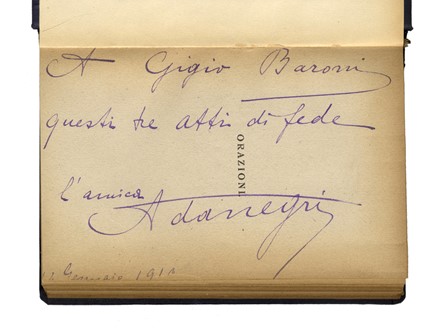 A Gigio Baroni
questi tre atti di fede
ORAZIONI
l'amica
Ada negri
Gennaio